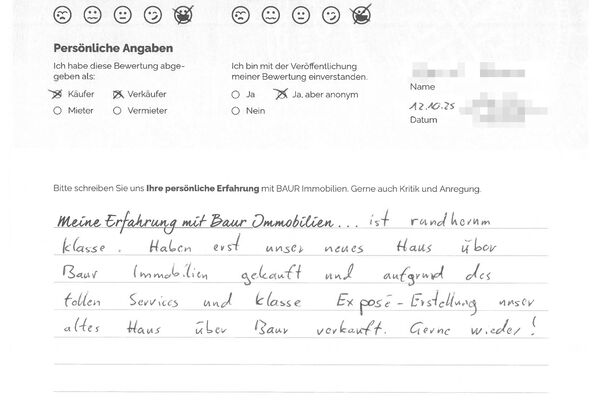 Persönliche Angaben
Ich habe diese Bewertung abge-
geben als:
Käufer Verkäufer
Mieter Vermieter
Ich bin mit der Veröffentlichung
meiner Bewertung einverstanden.
Ja Ja, aber anonym
Nein
Name
12.10.25
Datum
Bitte schreiben Sie uns Ihre persönliche Erfahrung mit BAUR Immobilien. Gerne auch Kritik und Anregung.
Meine Erfahrung mit Baur Immobilien... ist rundherum
klasse. Haben erst unser neues Haus über
Baur Immobilien gekauft und aufgrund des
tollen Services und klasse Exposé-Erstellung unser
altes Haus über Baur verkauft. Gerne wieder!